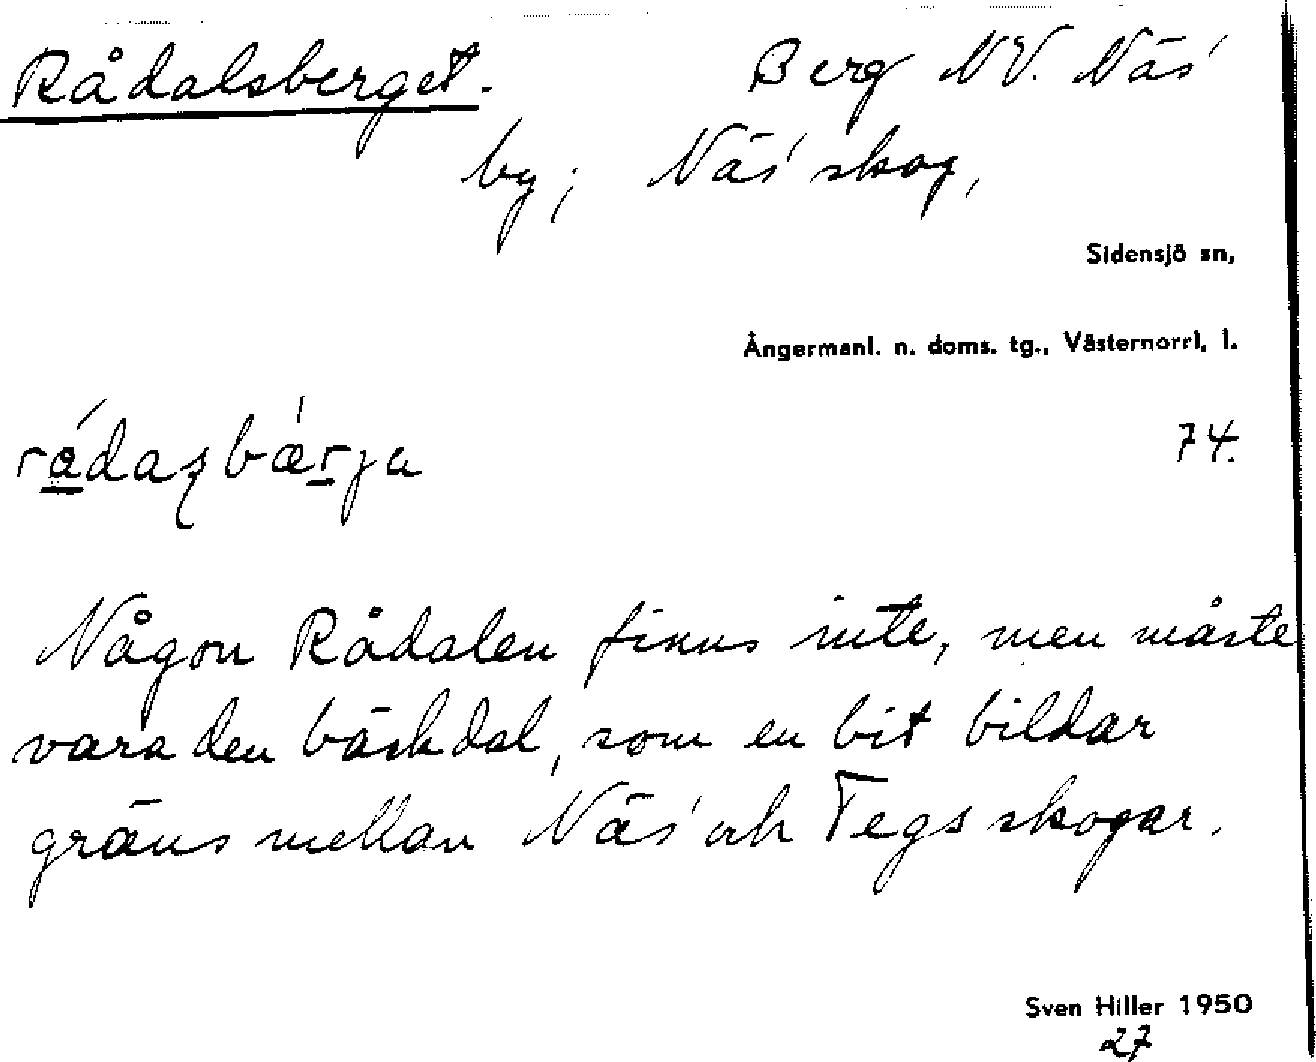 Rådalsberget. Berg NV. Näs'
by; Näs' skog,
Sidensjö sn,
Ångermanl. n. doms. tg., Västernorrl. l.
74.
Någon Rådalen finns inte, men måste
vara den bäckdal, som en bit bildar
gräns mellan Näs' och Tegs skogar.
Sven Hiller 1950
27